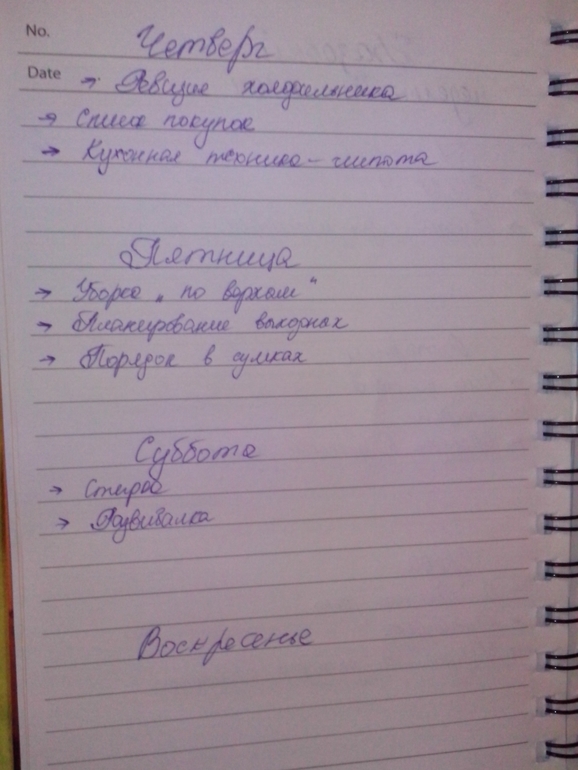 No.
Четверг
Date → Ревизия холодильника
→ Список покупок
→ Кухонная техника - чистота
Пятница
→ Уборка „по верхам"
→ Планирование выходных
→ Порядок в сумках
Суббота
→ Стирка
→ Развивалка
Воскресенье